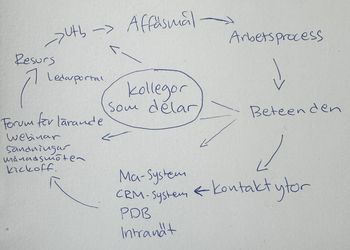 Utb
Affäsmål
Arbetsprocess
Resurs
Ledarportal
Kollegor
som delar
Beteenden
Forum för lärande
Webinar
Sändningar
månadsmöten
Kickoff
Ma-System
CRM-System
PDB
Intranät
Kontaktytor